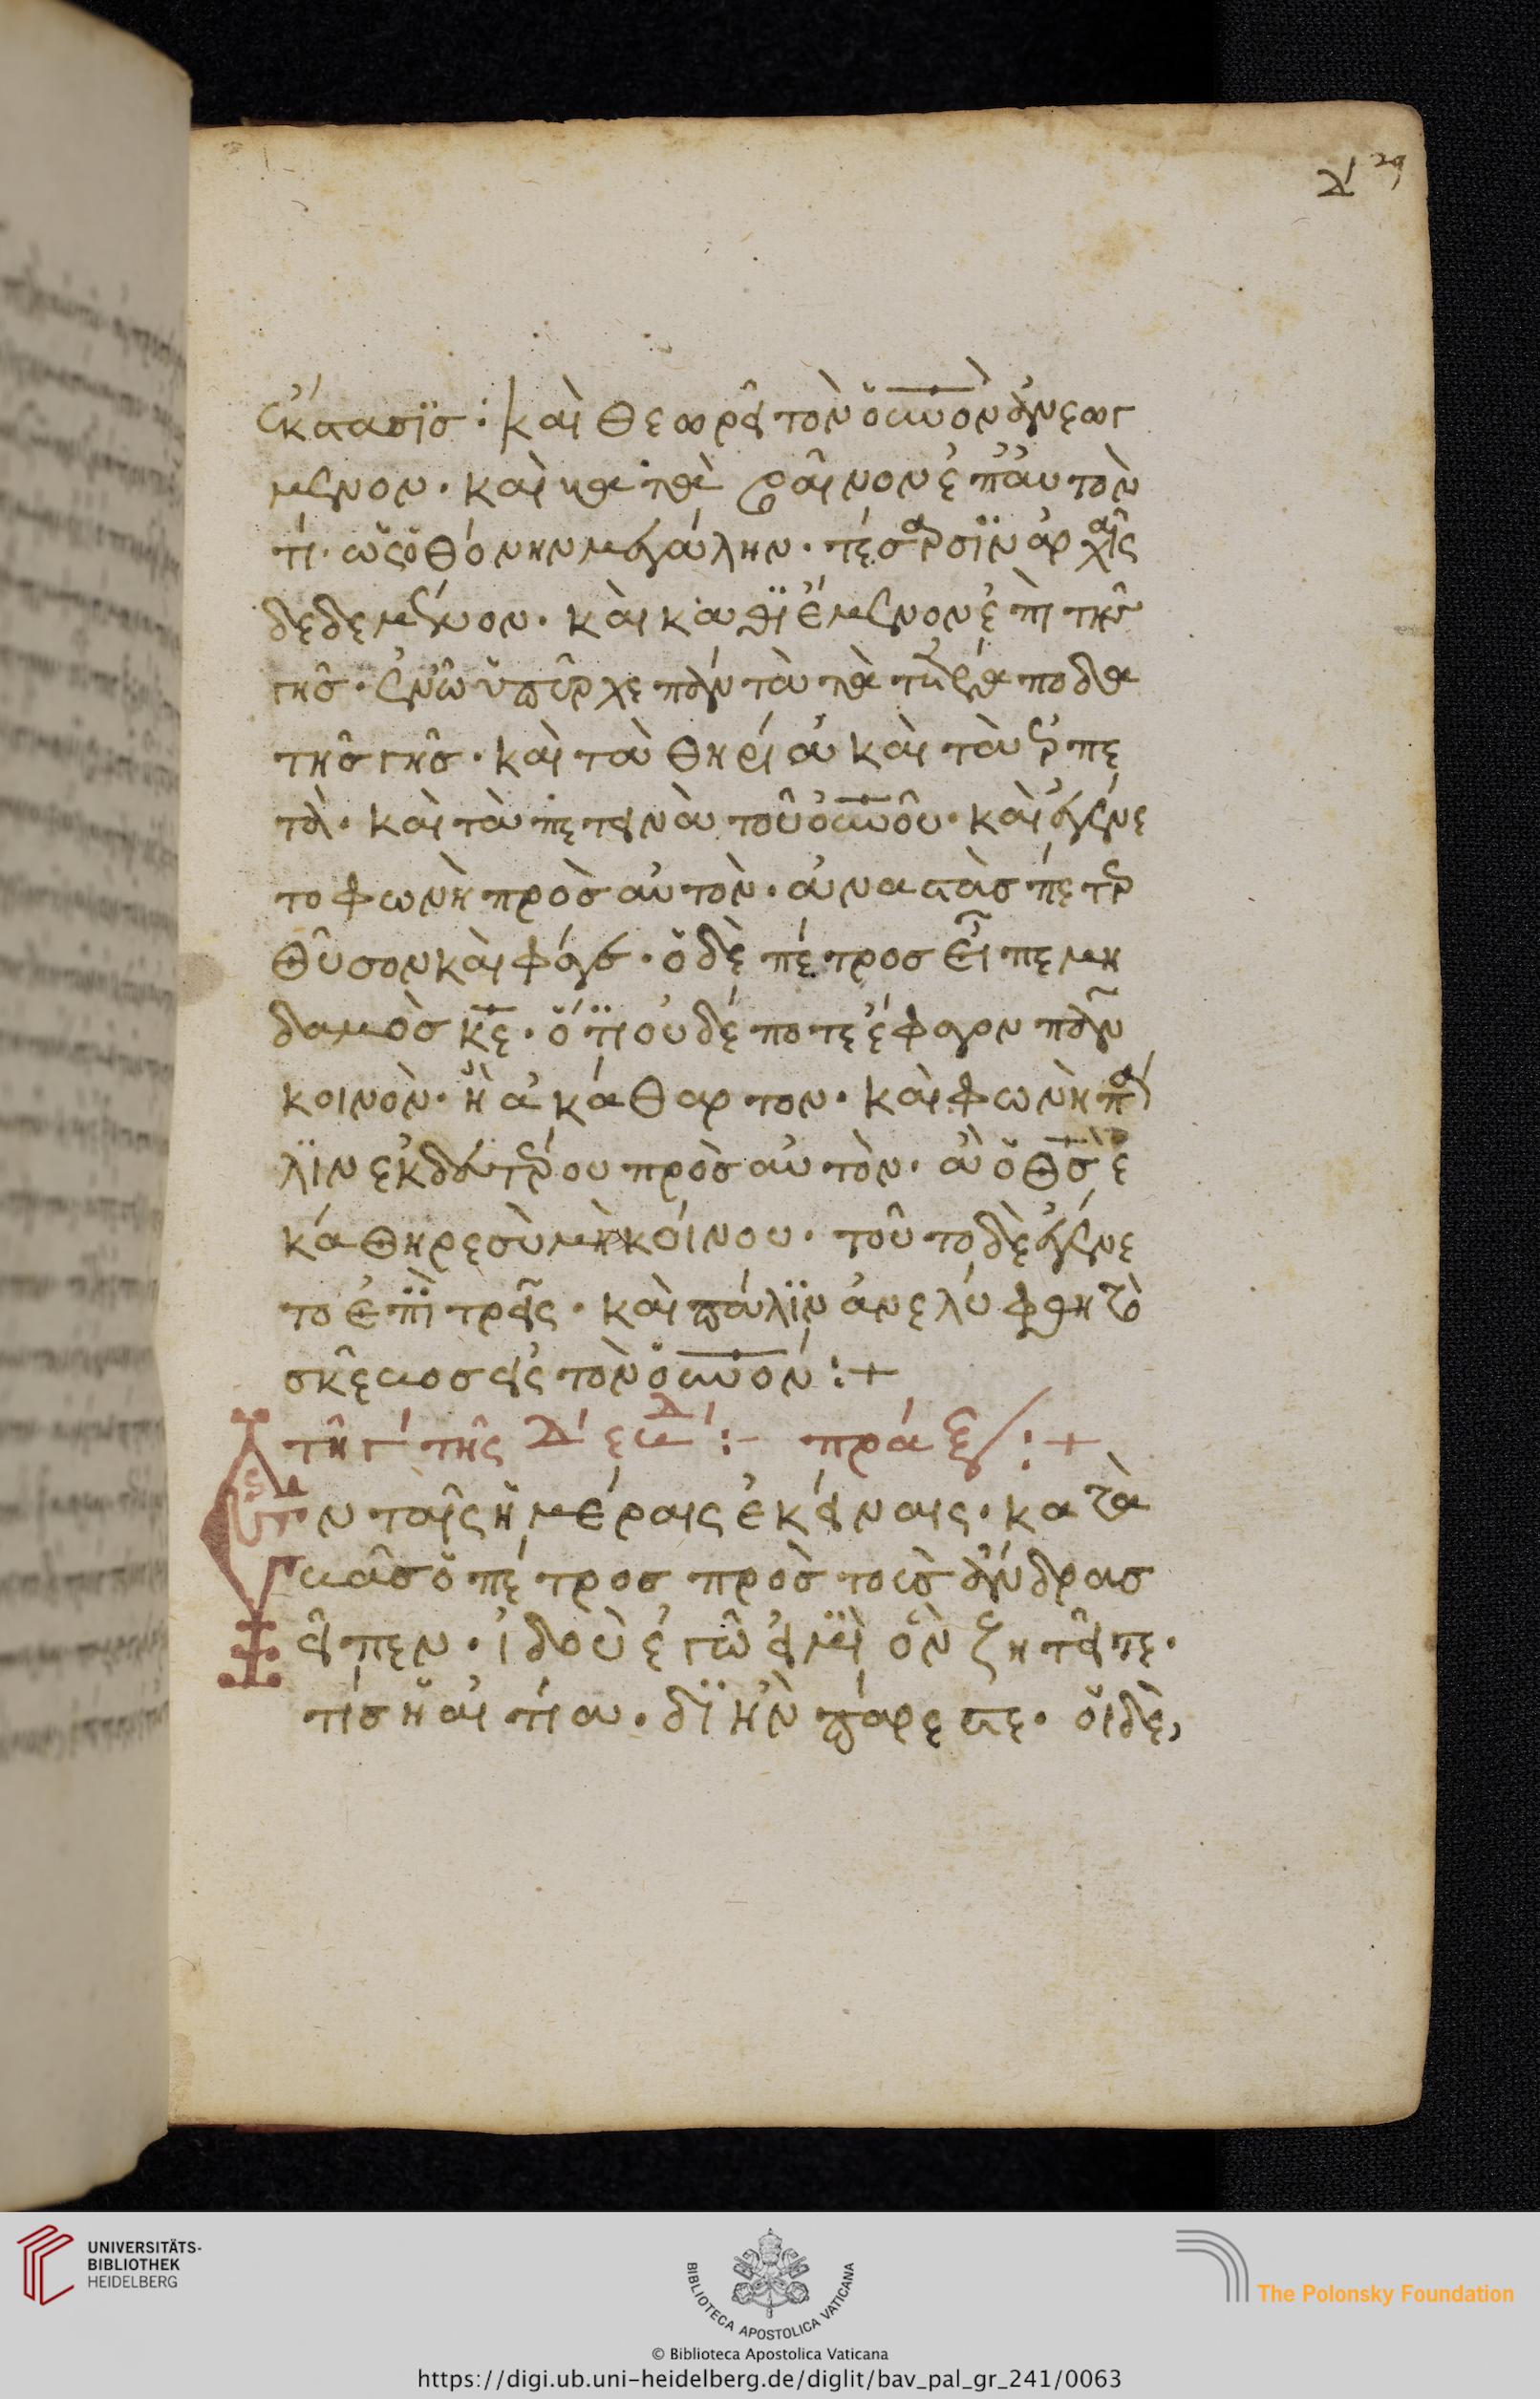 δ´ 29
ἔκστασϊσ: καὶ θεωρεῖ τὸν ὀυνὸν ἀνεωγ
μένον· καὶ κατα βαῖνον ἐπ' ἀυτὸν
τί· ὡς ὀθόνην μεγάλην· τέσαρσϊν ἀρχαῖς
δεδεμένον· καὶ καθϊέμενον ἐπὶ τῆσ
γῆσ· ἐν ὧ ὑπῆρχε πάντα τὰ τετράποδα
τῆσ γῆσ· καὶ τὰ θηρία καὶ τὰ ἑρπε
τὰ· καὶ τὰ πετεινὰ τοῦ ὀυνοῦ· καὶ ἐγένε
το φωνὴ πρὸσ αὐτὸν· ἀναστὰσ πέτρε
θῦσον καὶ φάγε· ὁ δὲ πέτροσ εἶπε μη
δαμὸσ κε· ὅτϊ οὐδέποτε ἔφαγον πᾶν
κοινὸν· ἢ ἀκάθαρτον· καὶ φωνὴ πά
λϊν εκδευτέρου πρὸσ αὐτὸν· ἃ ὁ θσ ἐ
κάθηρε σὺ μὴ κοίνου· τοῦτο δὲ ἐγένε
το ἐπῒ τρεῖς· καὶ πάλϊν ἀνελύφθη τὸ
σκεῦοσ εἰς τὸν ὀυνόν :+
τῆ γ´ τῆς δ´ εβδ´ :- πράξε :+
Ἐν ταῖς ἡμέραις ἐκείναις· κατα
βὰσ ὁ πέτροσ πρὸσ τοὺσ ἄνδρασ
εἶπεν· ἰδοὺ ἐγὼ εἰμῒ ὃν ζητεῖτε·
τίσ ἡ αἰτία· δϊ ἣν πάρεστε· ὁι δὲ,
UNIVERSITÄTS-
BIBLIOTHEK
HEIDELBERG
BIBLIOTECA APOSTOLICA VATICANA
The Polonsky Foundation
© Biblioteca Apostolica Vaticana
https://digi.ub.uni-heidelberg.de/diglit/bav_pal_gr_241/0063